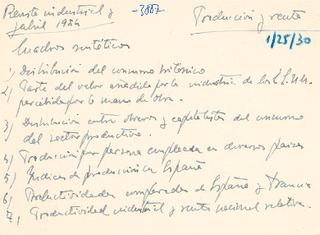 Renta industrial y -3887 Producción y renta
fabril 1954
1/25/30
Cuadros sintéticos
1) Distribución del consumo britonico
2) Parte del valor añadido por la industria de los EE.UU.
percibida por la mano de obra.
3) Distribución entre obreros y capitalistas del consumo
del sector productivo.
4) Producción por persona empleada en diversos países
5) Indices de producción en España
6) Productividades comparadas de España y Francia
7) Productividad industrial y renta nacional relativa.